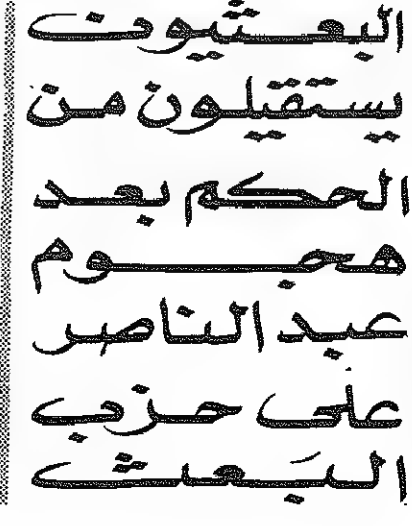 البعثيون
يستقيلون من
الحكم بعد
هجوم
عبد الناصر
على حزب
البعث